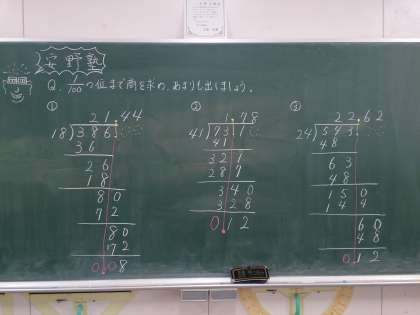 安野塾
Q. 1/100の位まで商を求め、あまりも出しましょう。
①
21.44
18)386.
36
26
18
80
72
80
72
0.08
②
1.78
41)73.1
41
321
287
340
328
0.12
③
22.62
24)543.
48
63
48
150
144
60
48
0.12